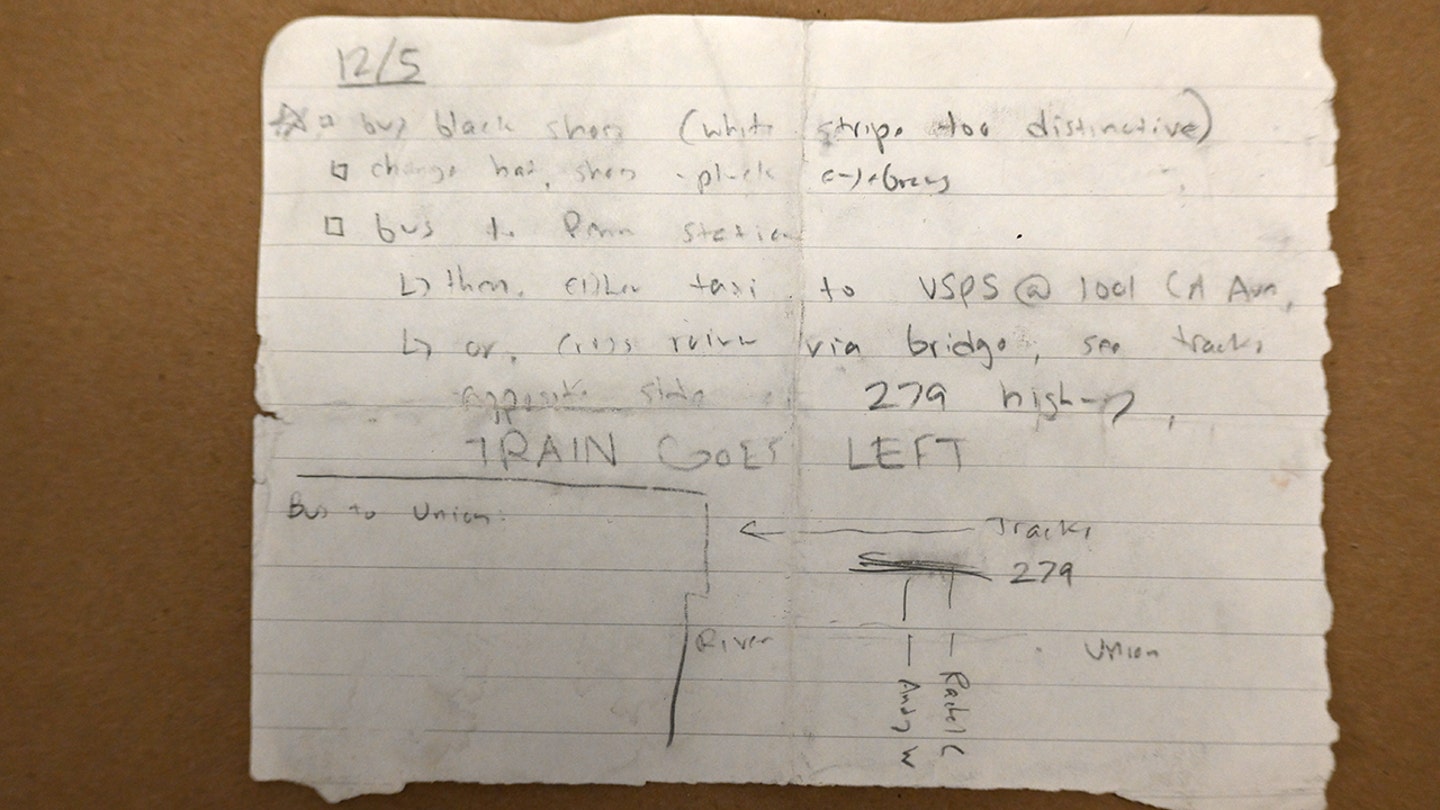 12/5
buy black shoes (white stripe too distinctive)
change hat, shoes, pluck eyebrows
bus to Penn station
then, either taxi to USPS @ 1001 CA Ave,
or, cross river via bridge, see tracks
opposite side 279 highway,
TRAIN GOES LEFT
Bus to Union:
Tracks
279
River
Union
Rachel C
Andy W